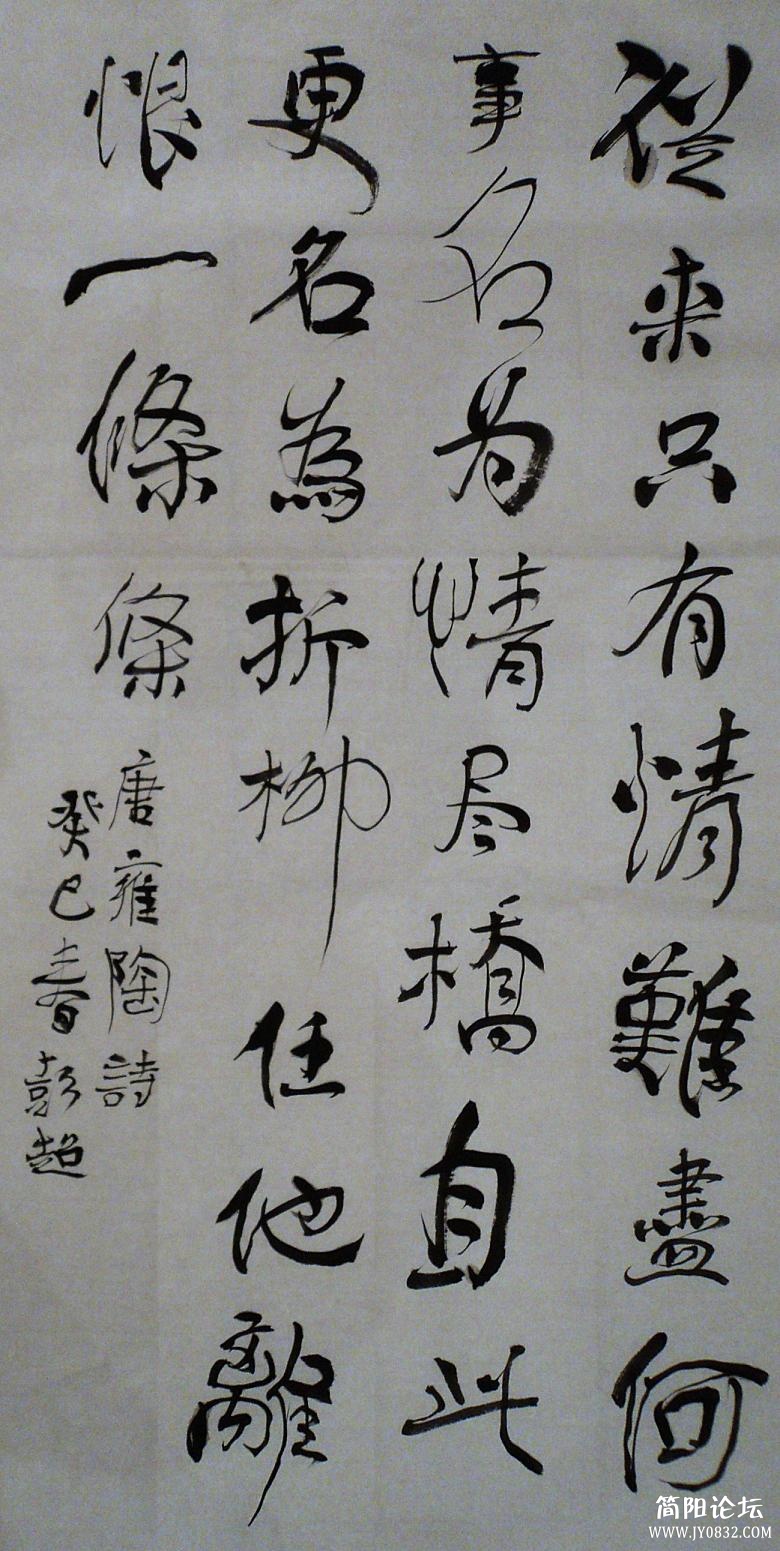 從来只有情難盡何
事名为情尽橋自此
更名為折柳任他離
恨一條條
唐雍陶詩
癸巳春彭超
简阳论坛
www.JY0832.com